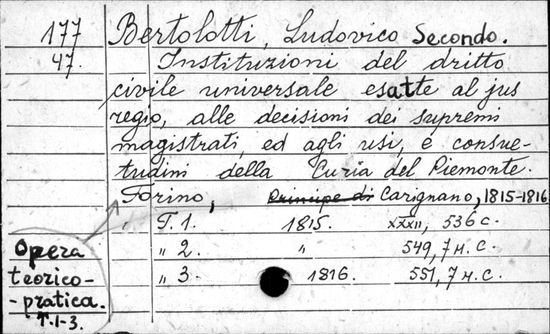 177
47.
Bertolotti, Ludovico Secondo.
Instituzioni del dritto
civile universale esatte al jus
regio, alle decisioni dei supremi
magistrati, ed agli usi, e consue-
tudini della Curia del Piemonte.
Torino, Principe di Carignano, 1815-1816
T. 1. 1815. XXXII, 536 с.
„ 2. „ 549, 7 н. с.
„ 3 1816. 551, 7 н. с.
Opera
teorico-
-pratica.
T. 1-3.